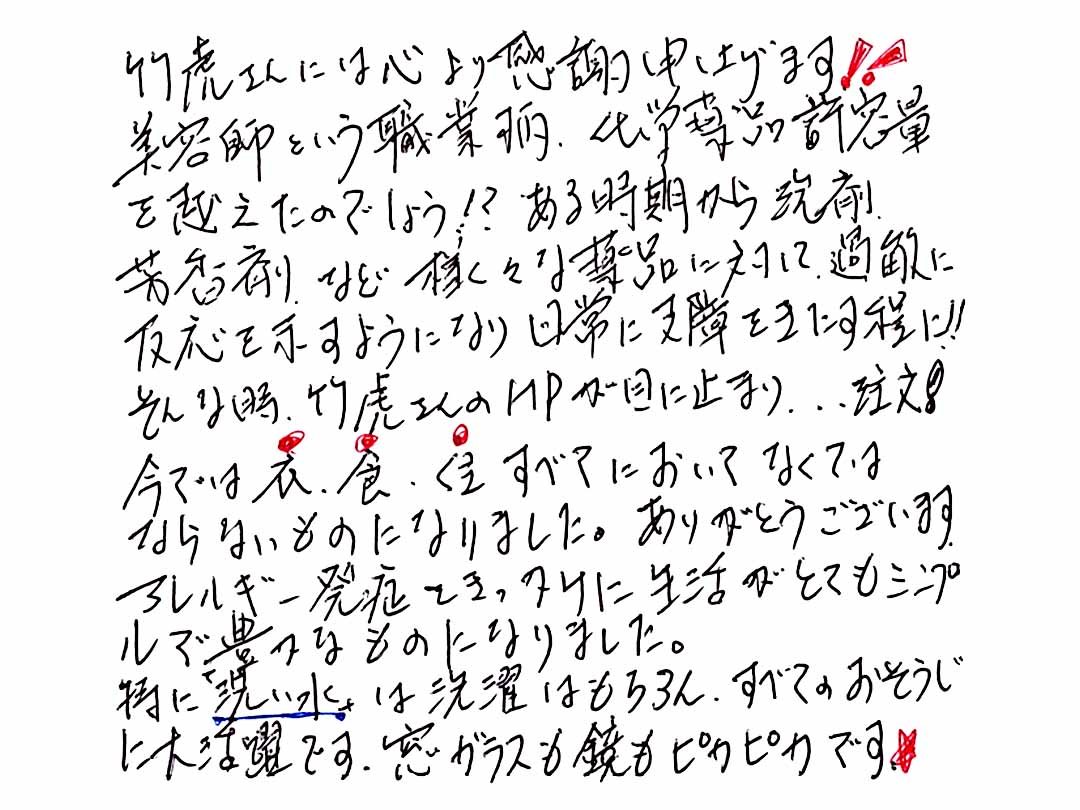 竹虎さんには心より感謝申し上げます!!
美容師という職業柄、化学薬品許容量
を越えたのでしょう!? ある時期から洗剤、
芳香剤、など様々な薬品に対して、過敏に
反応を示すようになり日常に支障をきたす程に!!
そんな時、竹虎さんのHPが目に止まり...注文!
今では衣、食、住すべてにおいてなくては
ならないものになりました。ありがとうございます。
アレルギー発症をきっかけに生活がとてもシンプ
ルで豊かなものになりました。
特に「洗い水」は洗濯はもちろん、すべてのおそうじ
に大活躍です。窓ガラスも鏡もピカピカです!!